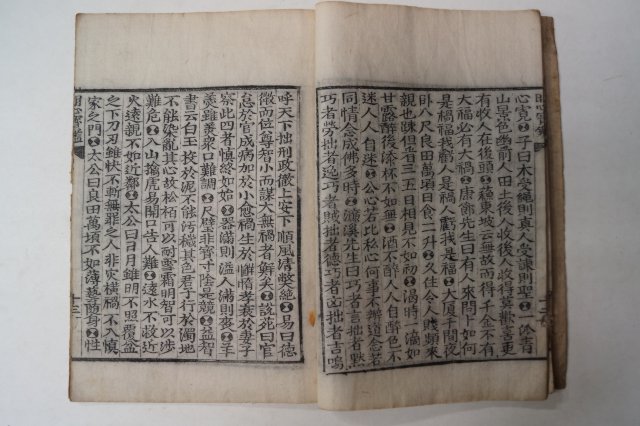 明心寶鑑
心寬○子曰木受繩則直人受諫則聖○一派青
山景色幽前人田土後人收後人收得莫歡喜更
有收人在後頭○蘇東坡云無故而得千金不有
大福必有大禍○康節先生曰有人來問卜如何
是禍福我虧人是禍人虧我是福○大厦千間夜
臥八尺良田萬頃日食二升○久住令人賤頻來
親也踈但看三五日相見不如初○渴時一滴如
甘露醉後添杯不如無○酒不醉人人自醉色不
迷人人自迷○公心若比私心何事不辦道念若
同情念成佛多時○濂溪先生曰巧者言拙者黙
巧者勞拙者逸巧者賊拙者德巧者凶拙者吉嗚
呼天下拙刑政徹上安下順風清弊絶○易曰德
微而位尊智小而謀大無禍者鮮矣○說苑曰官
怠於官成病加於小愈禍生於懈惰孝衰於妻子
察此四者愼終如始○器滿則溢人滿則喪○羊
羹雖美衆口難調○尺璧非寶寸陰是競○益智
書云白玉投於泥不能汚穢其色君子行於濁地
不能染亂其心故松柏可以耐雪霜明智可以涉
難危○入山擒虎易開口告人難○遠水不救近
火遠親不如近鄰○太公曰日月雖明不照覆盆
之下刀刃雖快不斬無罪之人非災橫禍不入愼
家之門○太公曰良田萬頃不如薄藝隨身○性
明心寶鑑
十三